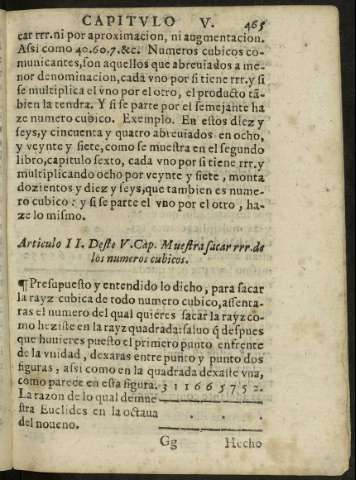 CAPITVLO V. 465
car rrr.ni por aproximacion, ni augmentacion.
Assi como 40.60.7.&c. Numeros cubicos co-
municantes,son aquellos que abreuiados a me-
nor denominacion,cada vno por si tiene rrr.y si
se multiplica el vno por el otro, el producto tã-
bien la tendra. Y si se parte por el semejante ha
ze numero cubico. Exemplo. En estos diez y
seys,y cincuenta y quatro abreuiados en ocho,
y veynte y siete,como se muestra en el segundo
libro,capitulo sexto, cada vno por si tiene rrr.y
multiplicando ocho por veynte y siete, monta
dozientos y diez y seys,que tambien es nume-
ro cubico: y si se parte el vno por el otro, ha-
ze lo mismo.
Articulo II. Deste V.Cap. Muestra sacar rrr.de
los numeros cubicos.
¶Presupuesto y entendido lo dicho, para sacar
la rayz cubica de todo numero cubico,assenta-
ras el numero del qual quieres sacar la rayz co-
mo heziste en la rayz quadrada: saluo q̃ despues
que huuieres puesto el primero punto enfrente
de la vnidad, dexaras entre punto y punto dos
figuras, assi como en la quadrada dexaste vna,
como parece en esta figura. 3 1 1 6 6 5 7 5 2.
La razon de lo qual demue
stra Euclides en la octaua . . .
del noueno.
Gg Hecho